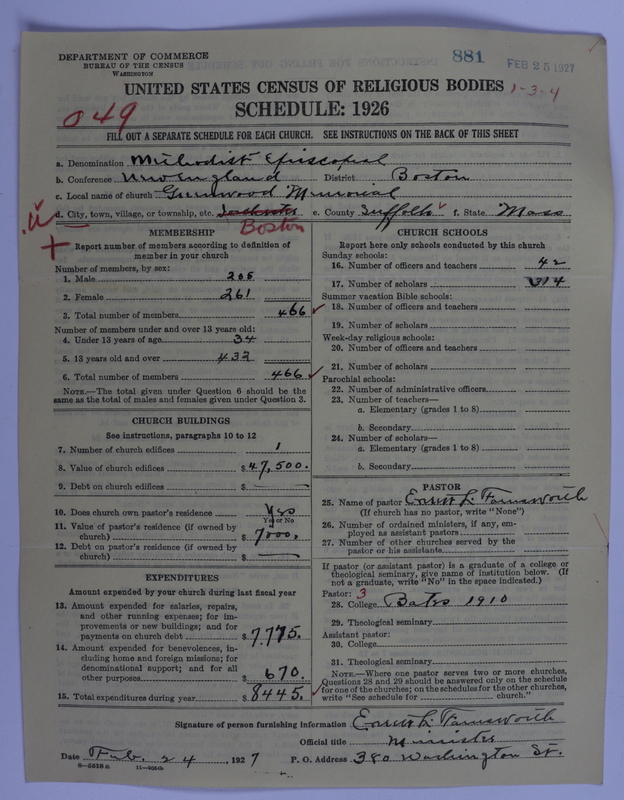 DEPARTMENT OF COMMERCE
BUREAU OF THE CENSUS
WASHINGTON
881
FEB 25 1927
UNITED STATES CENSUS OF RELIGIOUS BODIES
1-3-4
SCHEDULE: 1926
049
FILL OUT A SEPARATE SCHEDULE FOR EACH CHURCH. SEE INSTRUCTIONS ON THE BACK OF THIS SHEET
a. Denomination Methodist Episcopal
b. Conference New England District Boston
c. Local name of church Greenwood Memorial
d. City, town, village, or township, etc. Dorchester e. County Suffolk f. State Mass
Boston
MEMBERSHIP
Report number of members according to definition of
member in your church
Number of members, by sex:
1. Male 205
2. Female 261
3. Total number of members 466
Number of members under and over 13 years old:
4. Under 13 years of age 34
5. 13 years old and over 432
6. Total number of members 466
NOTE.—The total given under Question 6 should be the
same as the total of males and females given under Question 3.
CHURCH BUILDINGS
See instructions, paragraphs 10 to 12
7. Number of church edifices 1
8. Value of church edifices $47,500.
9. Debt on church edifices $ —
10. Does church own pastor's residence Yes
Yes or No
11. Value of pastor's residence (if owned by
church) $7000.
12. Debt on pastor's residence (if owned by
church) $ —
EXPENDITURES
Amount expended by your church during last fiscal year
13. Amount expended for salaries, repairs,
and other running expenses; for im-
provements or new buildings; and for
payments on church debt $7,775.
14. Amount expended for benevolences, in-
cluding home and foreign missions; for
denominational support; and for all
other purposes $670.
15. Total expenditures during year $8445.
CHURCH SCHOOLS
Report here only schools conducted by this church
Sunday schools:
16. Number of officers and teachers 42
17. Number of scholars 314
Summer vacation Bible schools:
18. Number of officers and teachers
19. Number of scholars
Week-day religious schools:
20. Number of officers and teachers
21. Number of scholars
Parochial schools:
22. Number of administrative officers
23. Number of teachers—
a. Elementary (grades 1 to 8)
b. Secondary
24. Number of scholars—
a. Elementary (grades 1 to 8)
b. Secondary
PASTOR
25. Name of pastor Ernest L. Farnsworth
(If church has no pastor, write "None")
26. Number of ordained ministers, if any, em-
ployed as assistant pastors
27. Number of other churches served by the
pastor or his assistants
If pastor (or assistant pastor) is a graduate of a college or
theological seminary, give name of institution below. (If
not a graduate, write "No" in the space indicated.)
Pastor: 3
28. College Bates 1910
29. Theological seminary
Assistant pastor:
30. College
31. Theological seminary
NOTE.—Where one pastor serves two or more churches,
Questions 28 and 29 should be answered only on the schedule
for one of the churches; on the schedules for the other churches,
write "See schedule for church."
Signature of person furnishing information Ernest L. Farnsworth
Official title Minister
Date Feb. 24, 1927 P. O. Address 380 Washington St.
8—5518 a 11-9051b